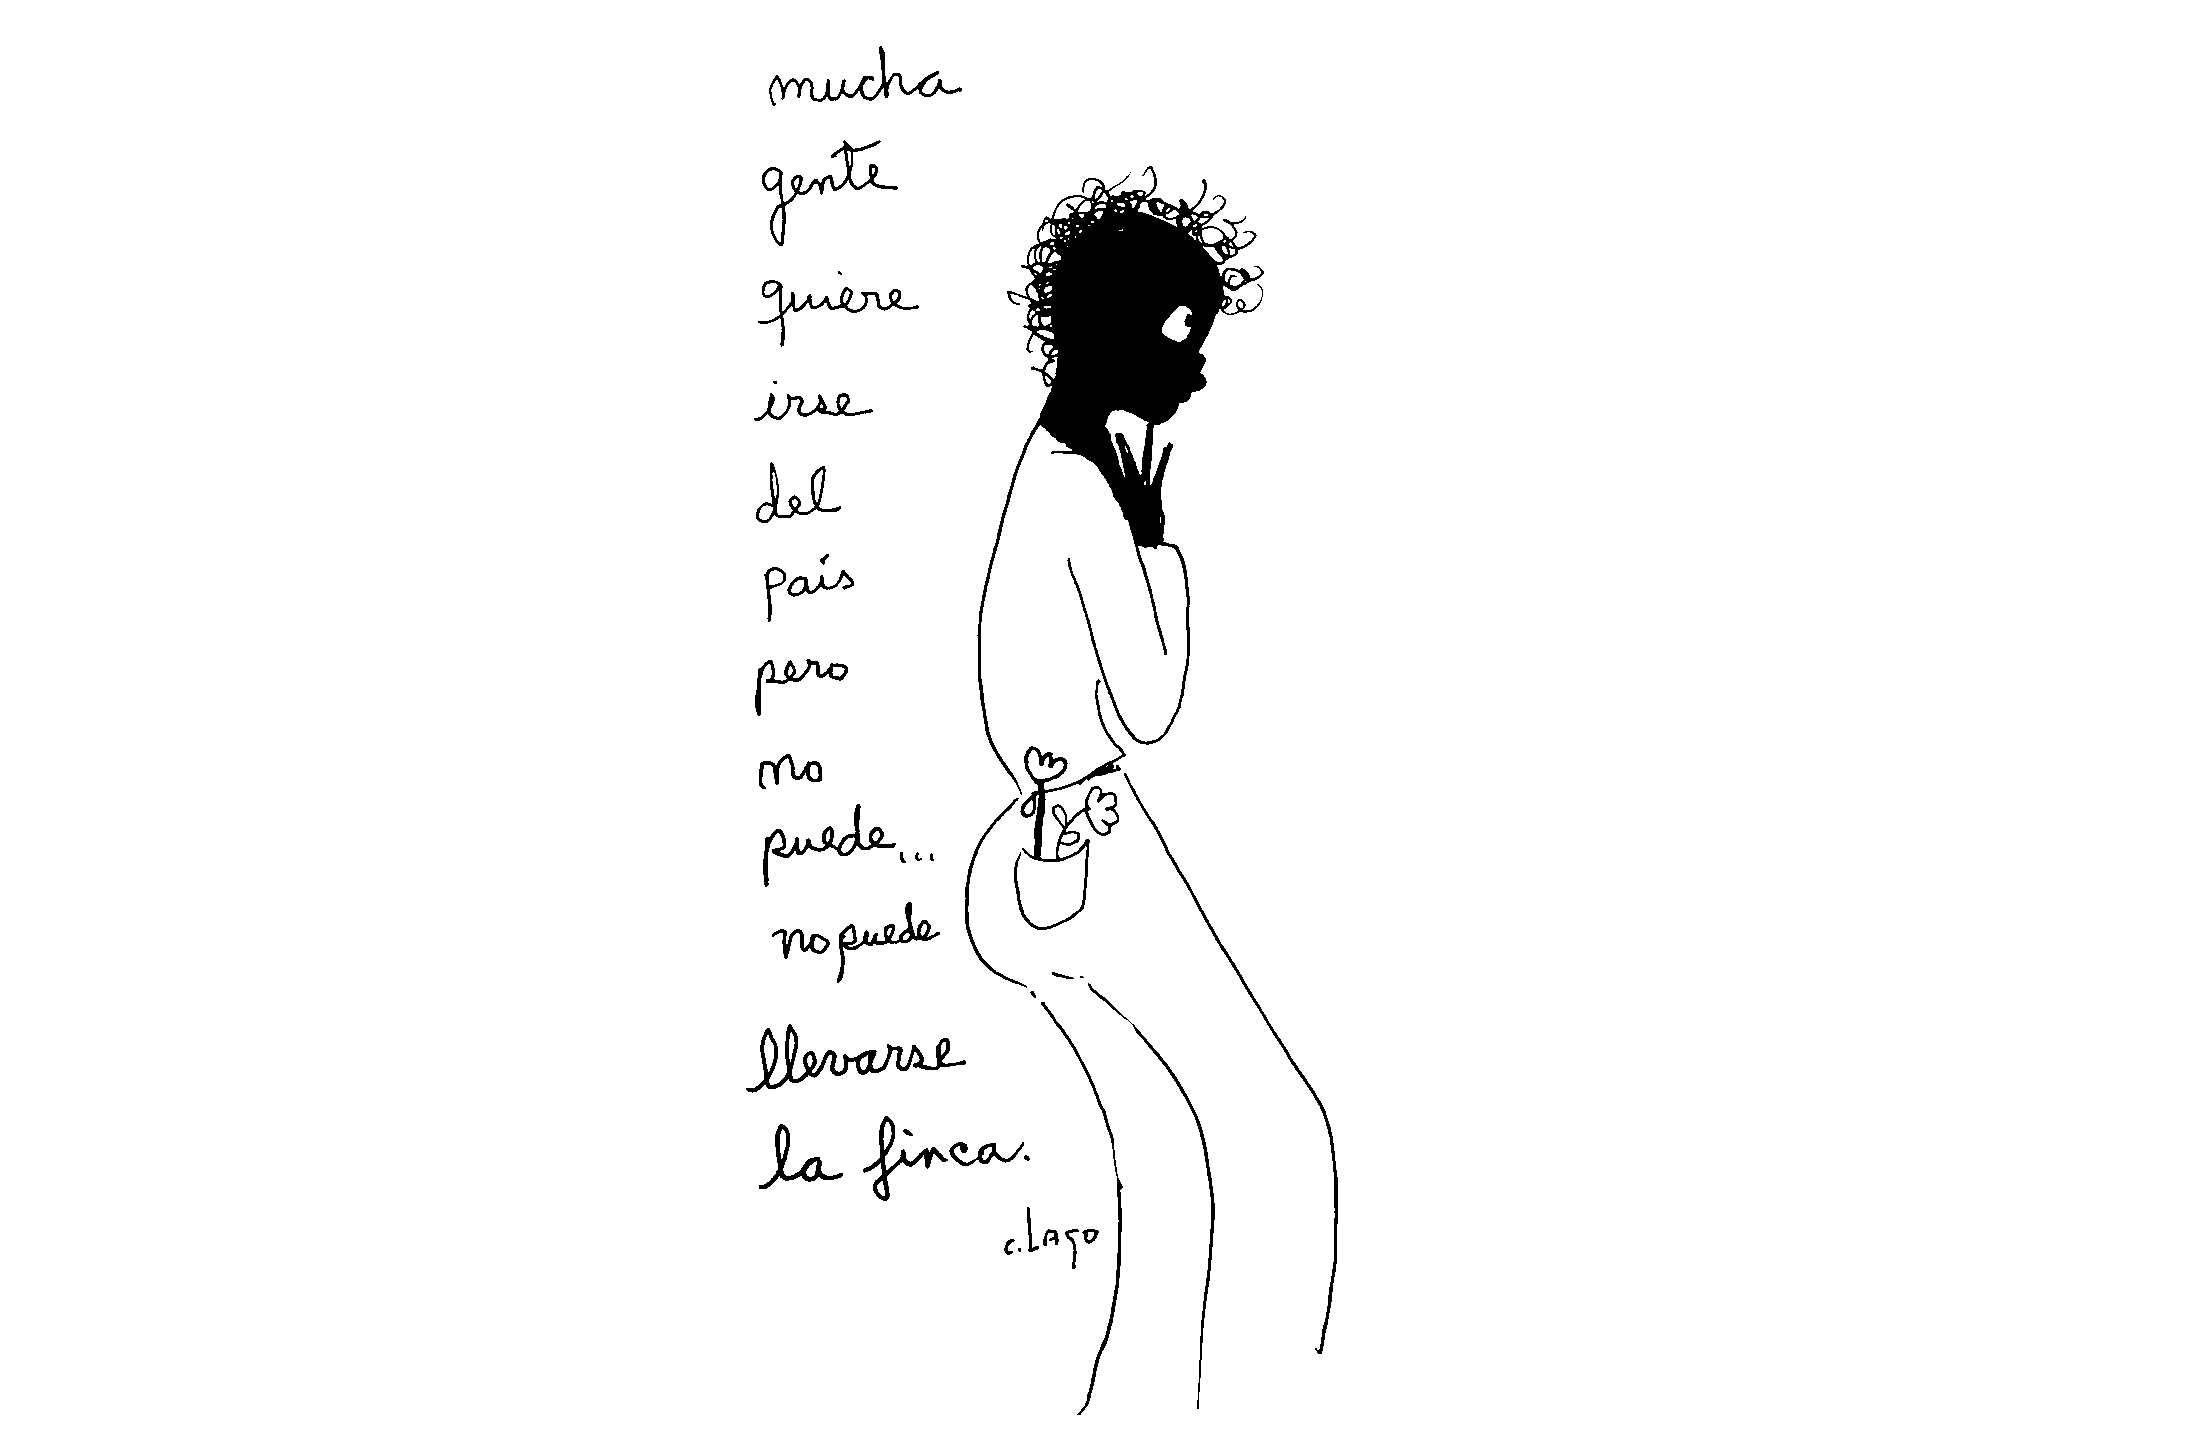 mucha
gente
quiere
irse
del
país
pero
no
puede...
no puede
llevarse
la finca.
c. Lago